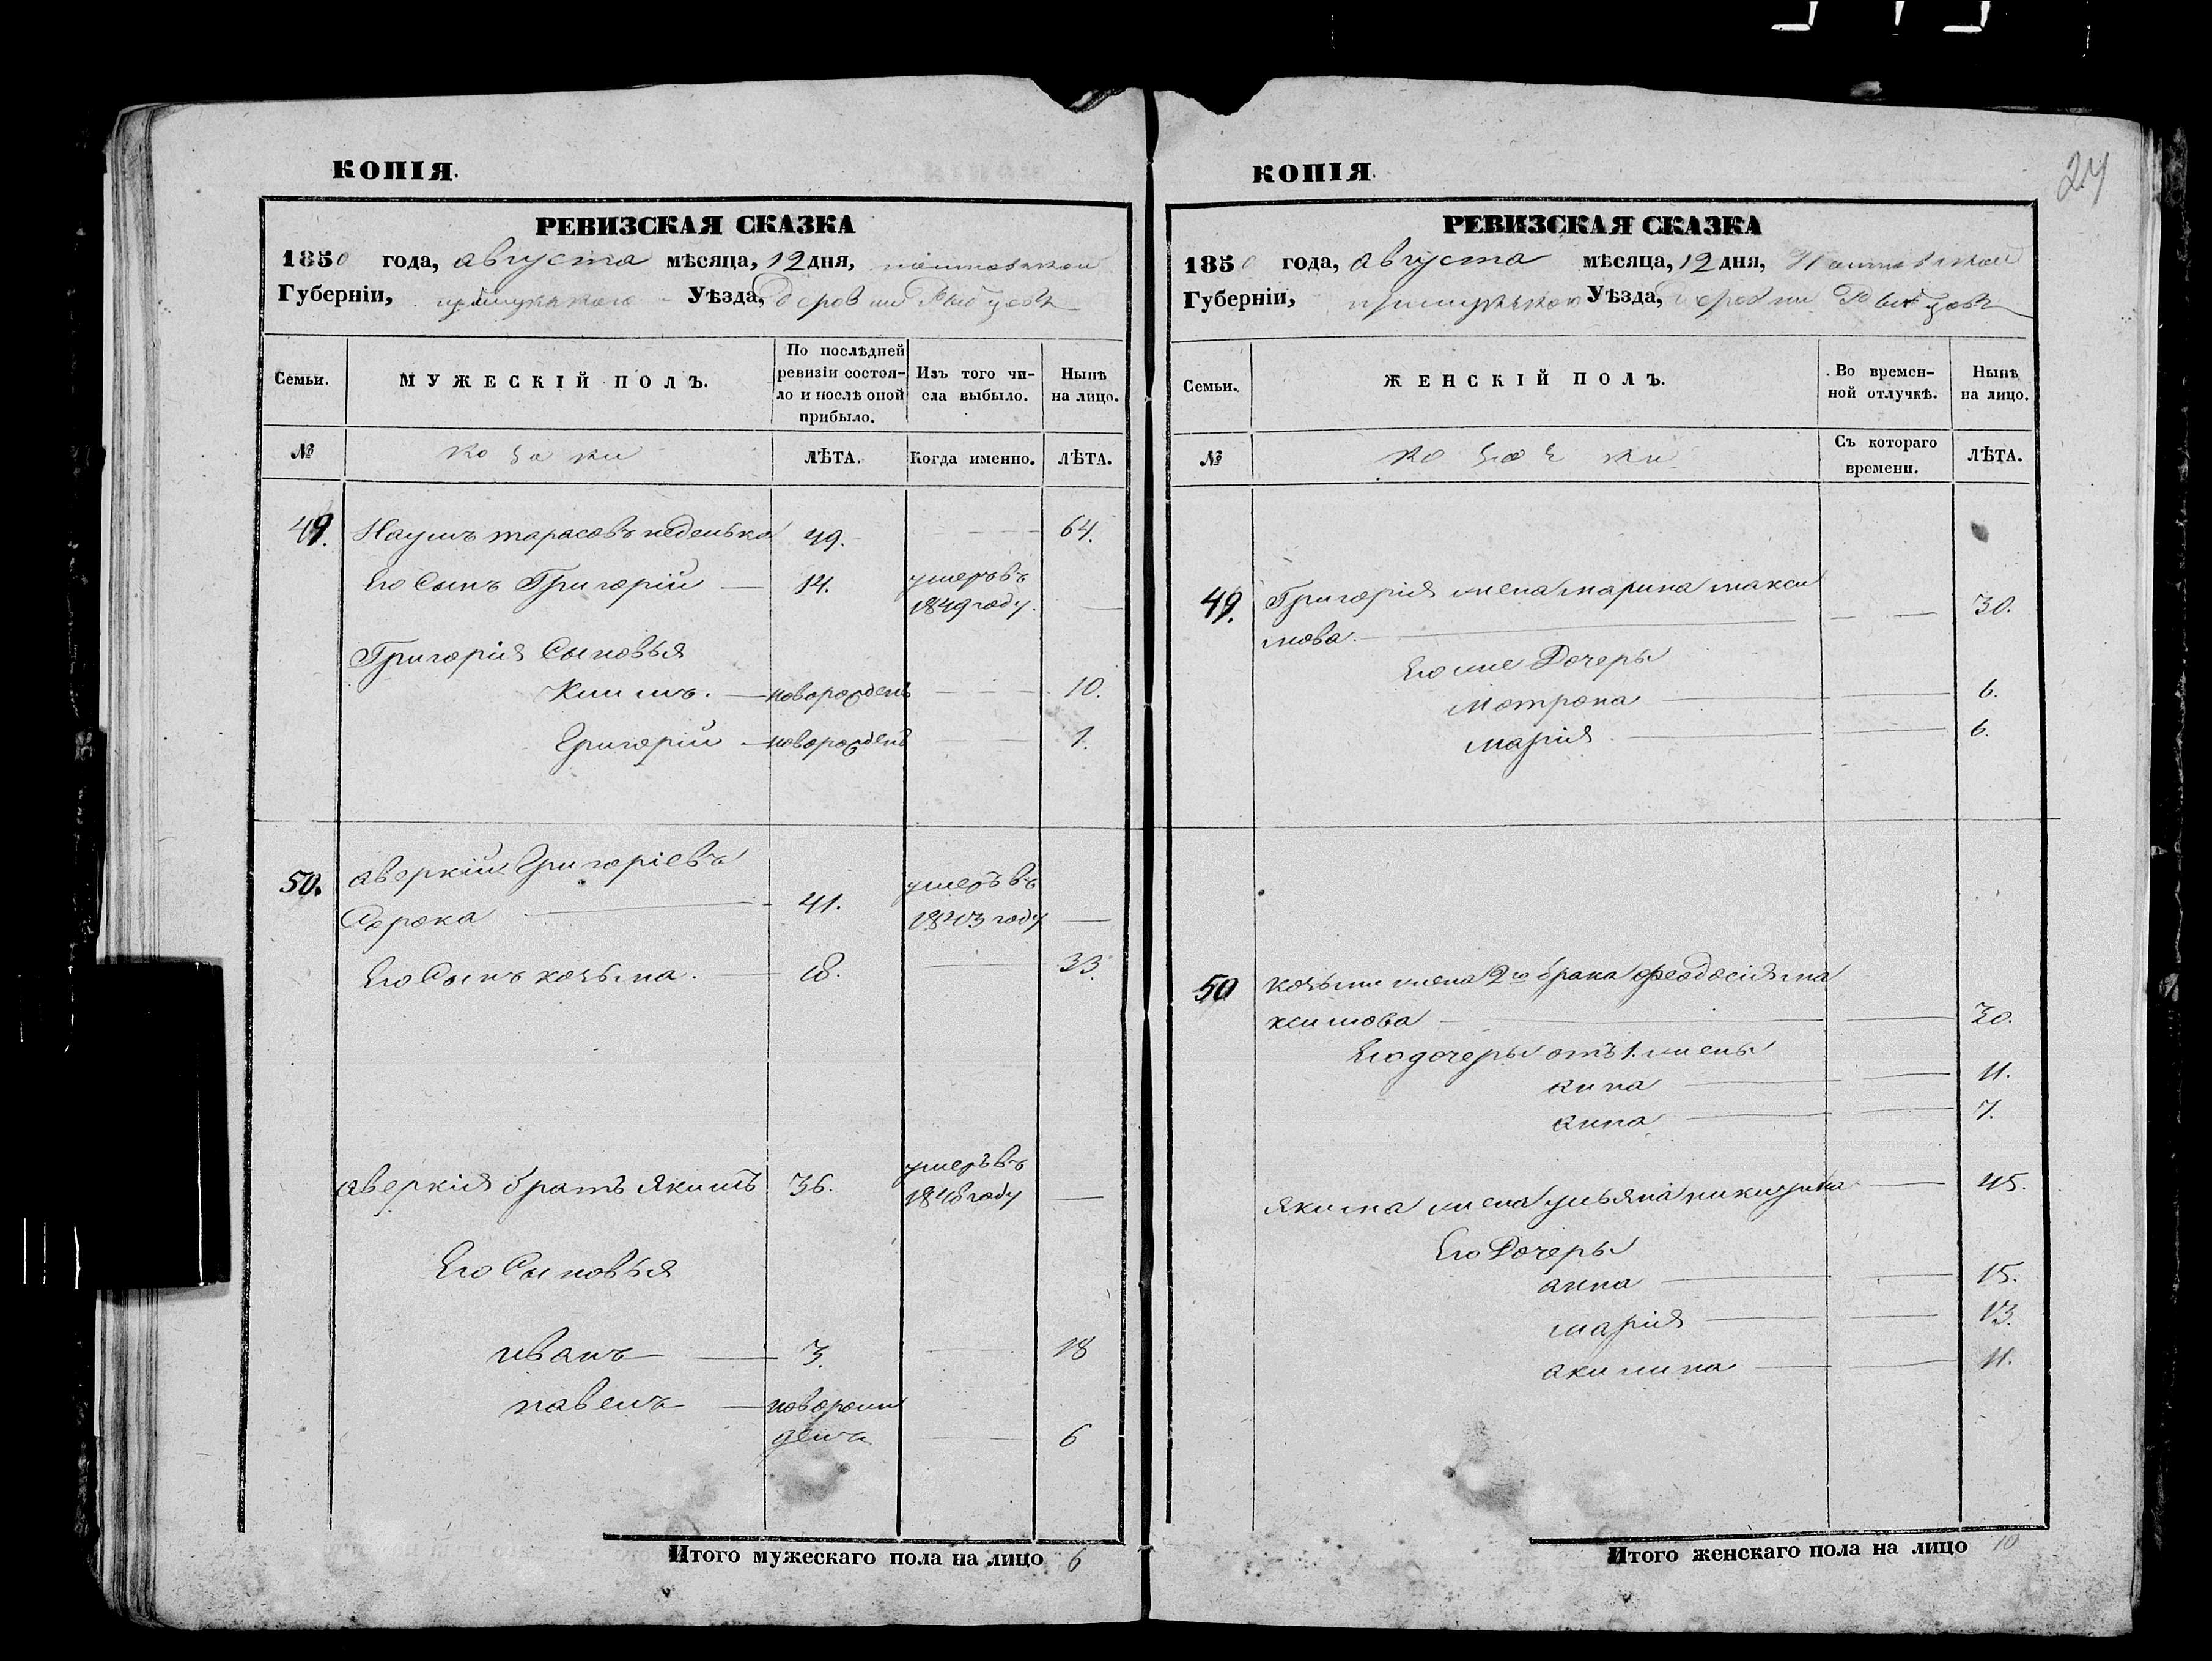 24
КОПІЯ.
РЕВИЗСКАЯ СКАЗКА
1850 года, августа мѣсяца, 12 дня, полтавской
Губерніи, прилуцкаго Уѣзда, Деровни Рыбцовъ
Семьи. МУЖЕСКІЙ ПОЛЪ. По послѣдней ревизіи состоя-ло и послѣ оной прибыло. Изъ того чи-сла выбыло. Нынѣ на лицо.
№ козаки ЛѢТА. Когда именно. ЛѢТА.
49. Наумъ тарасовъ неденька 49. 64.
Его Сынъ Григорій 14. умеръ въ
1849 году.
Григорія Сыновья
Климъ. новорожденъ 10.
Григорій новорожденъ 1.
50. аверкій Григоріевъ
Сорока 41. умеръ въ
1843 году
Его Сынъ козьма. 18. 33.
аверкія братъ Якимъ 36. умеръ въ
1848 году
Его Сыновья
иванъ 3. 18
павелъ новорож
денъ 6
Итого мужескаго пола на лицо 6
КОПІЯ.
РЕВИЗСКАЯ СКАЗКА
1850 года, августа мѣсяца, 12 дня, Полтавской
Губерніи, прилуцкаго Уѣзда, Деровни Рыбцовъ
Семьи. ЖЕНСКІЙ ПОЛЪ. Во времен-ной отлучкѣ. Нынѣ на лицо.
№ козачки Съ котораго времени. ЛѢТА.
49. Григорія жена марина макси
мова. 30.
Его же Дочеры
мотрона 6.
марія 6.
50 козьми жена 2го брака феодосія ма
ксимова 30.
Его дочеры отъ 1. жены
анна 11.
анна 7.
якима жена ульяна никитина 45.
Его Дочеры
анна 15.
марія 13.
акилина 11.
Итого женскаго пола на лицо 10